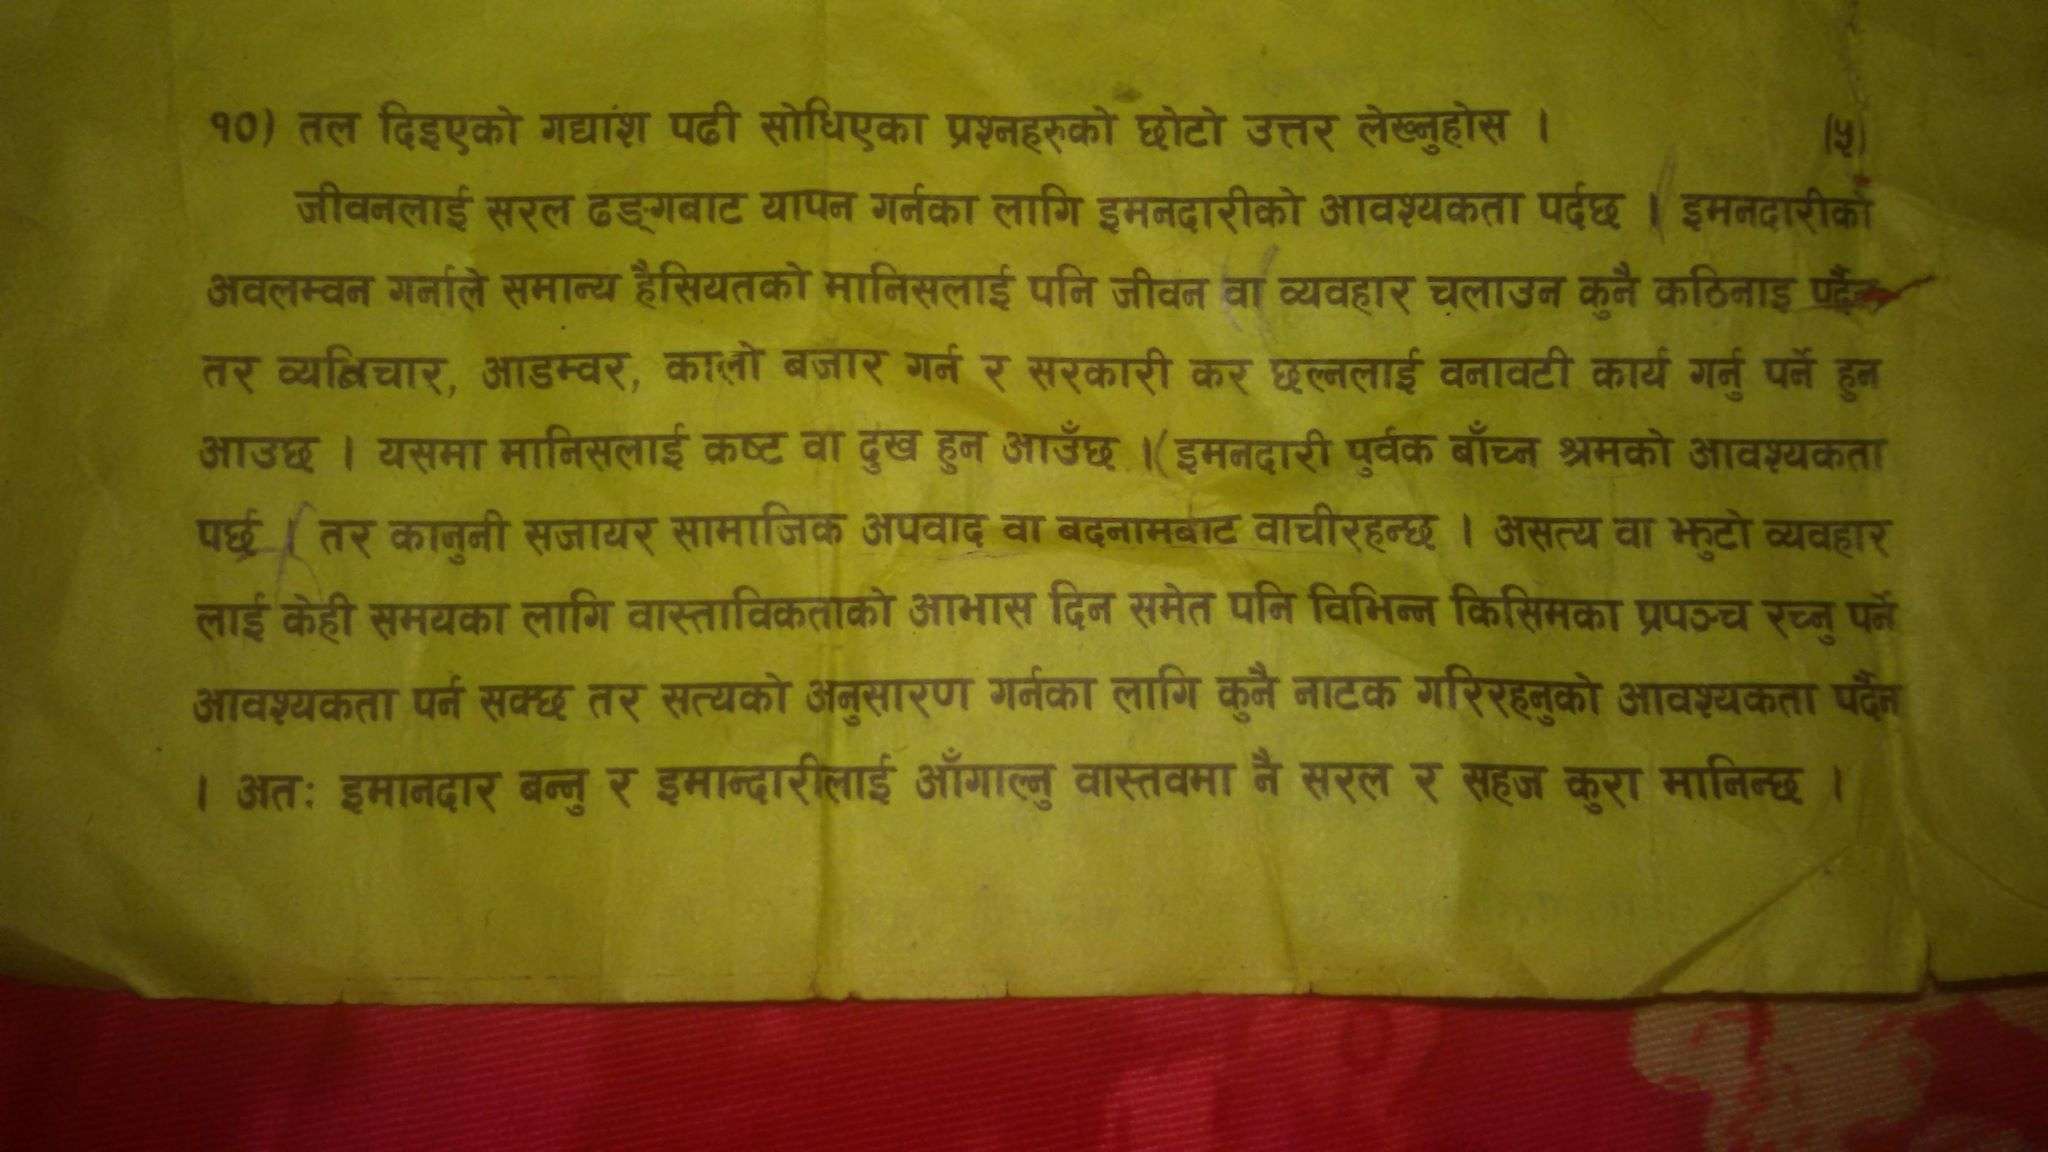 १०) तल दिइएको गद्यांश पढी सोधिएका प्रश्नहरुको छोटो उत्तर लेख्नुहोस । (५)
जीवनलाई सरल ढङ्गबाट यापन गर्नका लागि इमनदारीको आवश्यकता पर्दछ । इमनदारीको
अवलम्वन गर्नाले समान्य हैसियतको मानिसलाई पनि जीवन वा व्यवहार चलाउन कुनै कठिनाइ पर्दैन
तर व्यभिचार, आडम्वर, कालो बजार गर्न र सरकारी कर छल्नलाई वनावटी कार्य गर्नु पर्ने हुन
आउछ । यसमा मानिसलाई कष्ट वा दुख हुन आउँछ । इमनदारी पुर्वक बाँच्न श्रमको आवश्यकता
पर्छ । तर कानुनी सजायर सामाजिक अपवाद वा बदनामबाट वाचीरहन्छ । असत्य वा झुटो व्यवहार
लाई केही समयका लागि वास्ताविकताको आभास दिन समेत पनि विभिन्न किसिमका प्रपञ्च रच्नु पर्ने
आवश्यकता पर्न सक्छ तर सत्यको अनुसारण गर्नका लागि कुनै नाटक गरिरहनुको आवश्यकता पर्दैन
। अतः इमानदार बन्नु र इमान्दारीलाई आँगाल्नु वास्तवमा नै सरल र सहज कुरा मानिन्छ ।